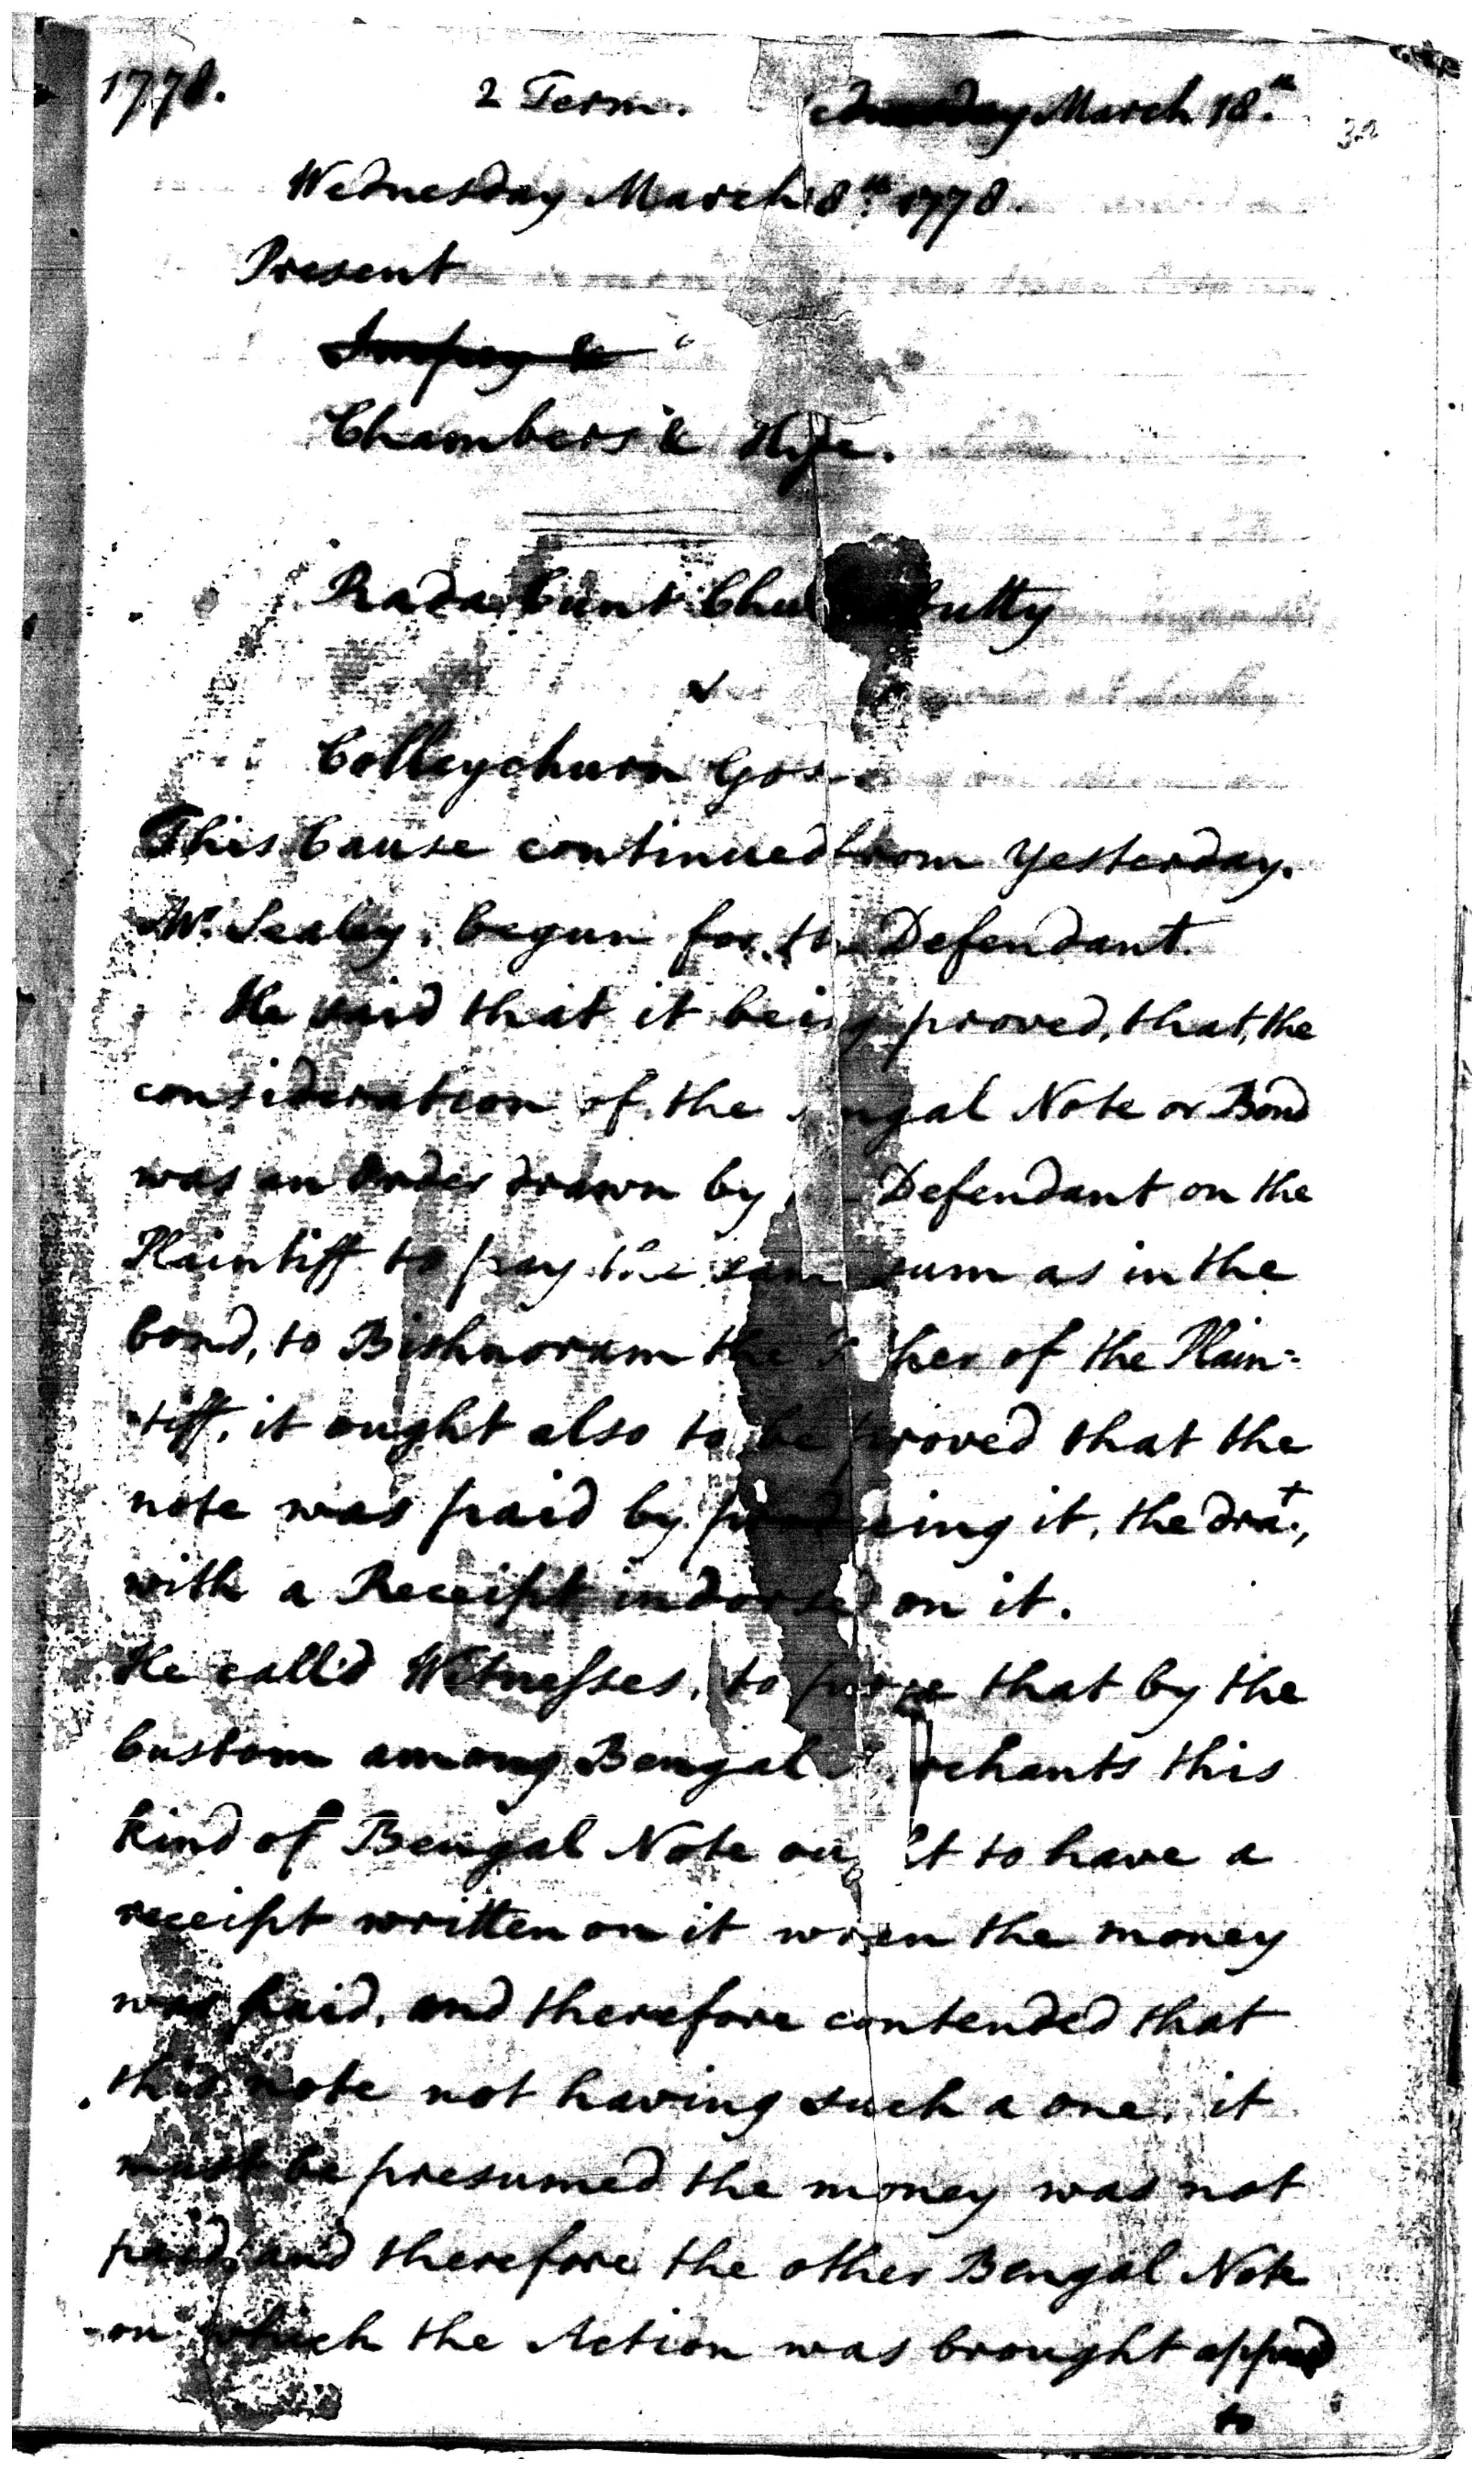 1778. 2 Term. March 18.th
32
Wednesday March 18.th 1778.
Present
Impey &
Chambers & Hyde.
Rada Cunt Chu butty
v
Colleychurn Gos
This Cause continued from yesterday.
Mr. Sealey, begun for the Defendant.
He said that it being proved, that, the
consideration of the ngal Note or Bond
was an Order drawn by Defendant on the
Plaintiff to pay the same sum as in the
bond, to Bishnoram the ther of the Plain=
tiff, it ought also to be proved that the
note was paid by producing it, the dra.t,
with a Receipt indorsed on it.
He call'd Witnesses, to prove that by the
Custom among Bengal rchants this
kind of Bengal Note ought to have a
receipt written on it when the money
was paid, and therefore contended that
this note not having such a one, it
must be presumed the money was not
paid, and therefore the other Bengal Note
on which the Action was brought
to